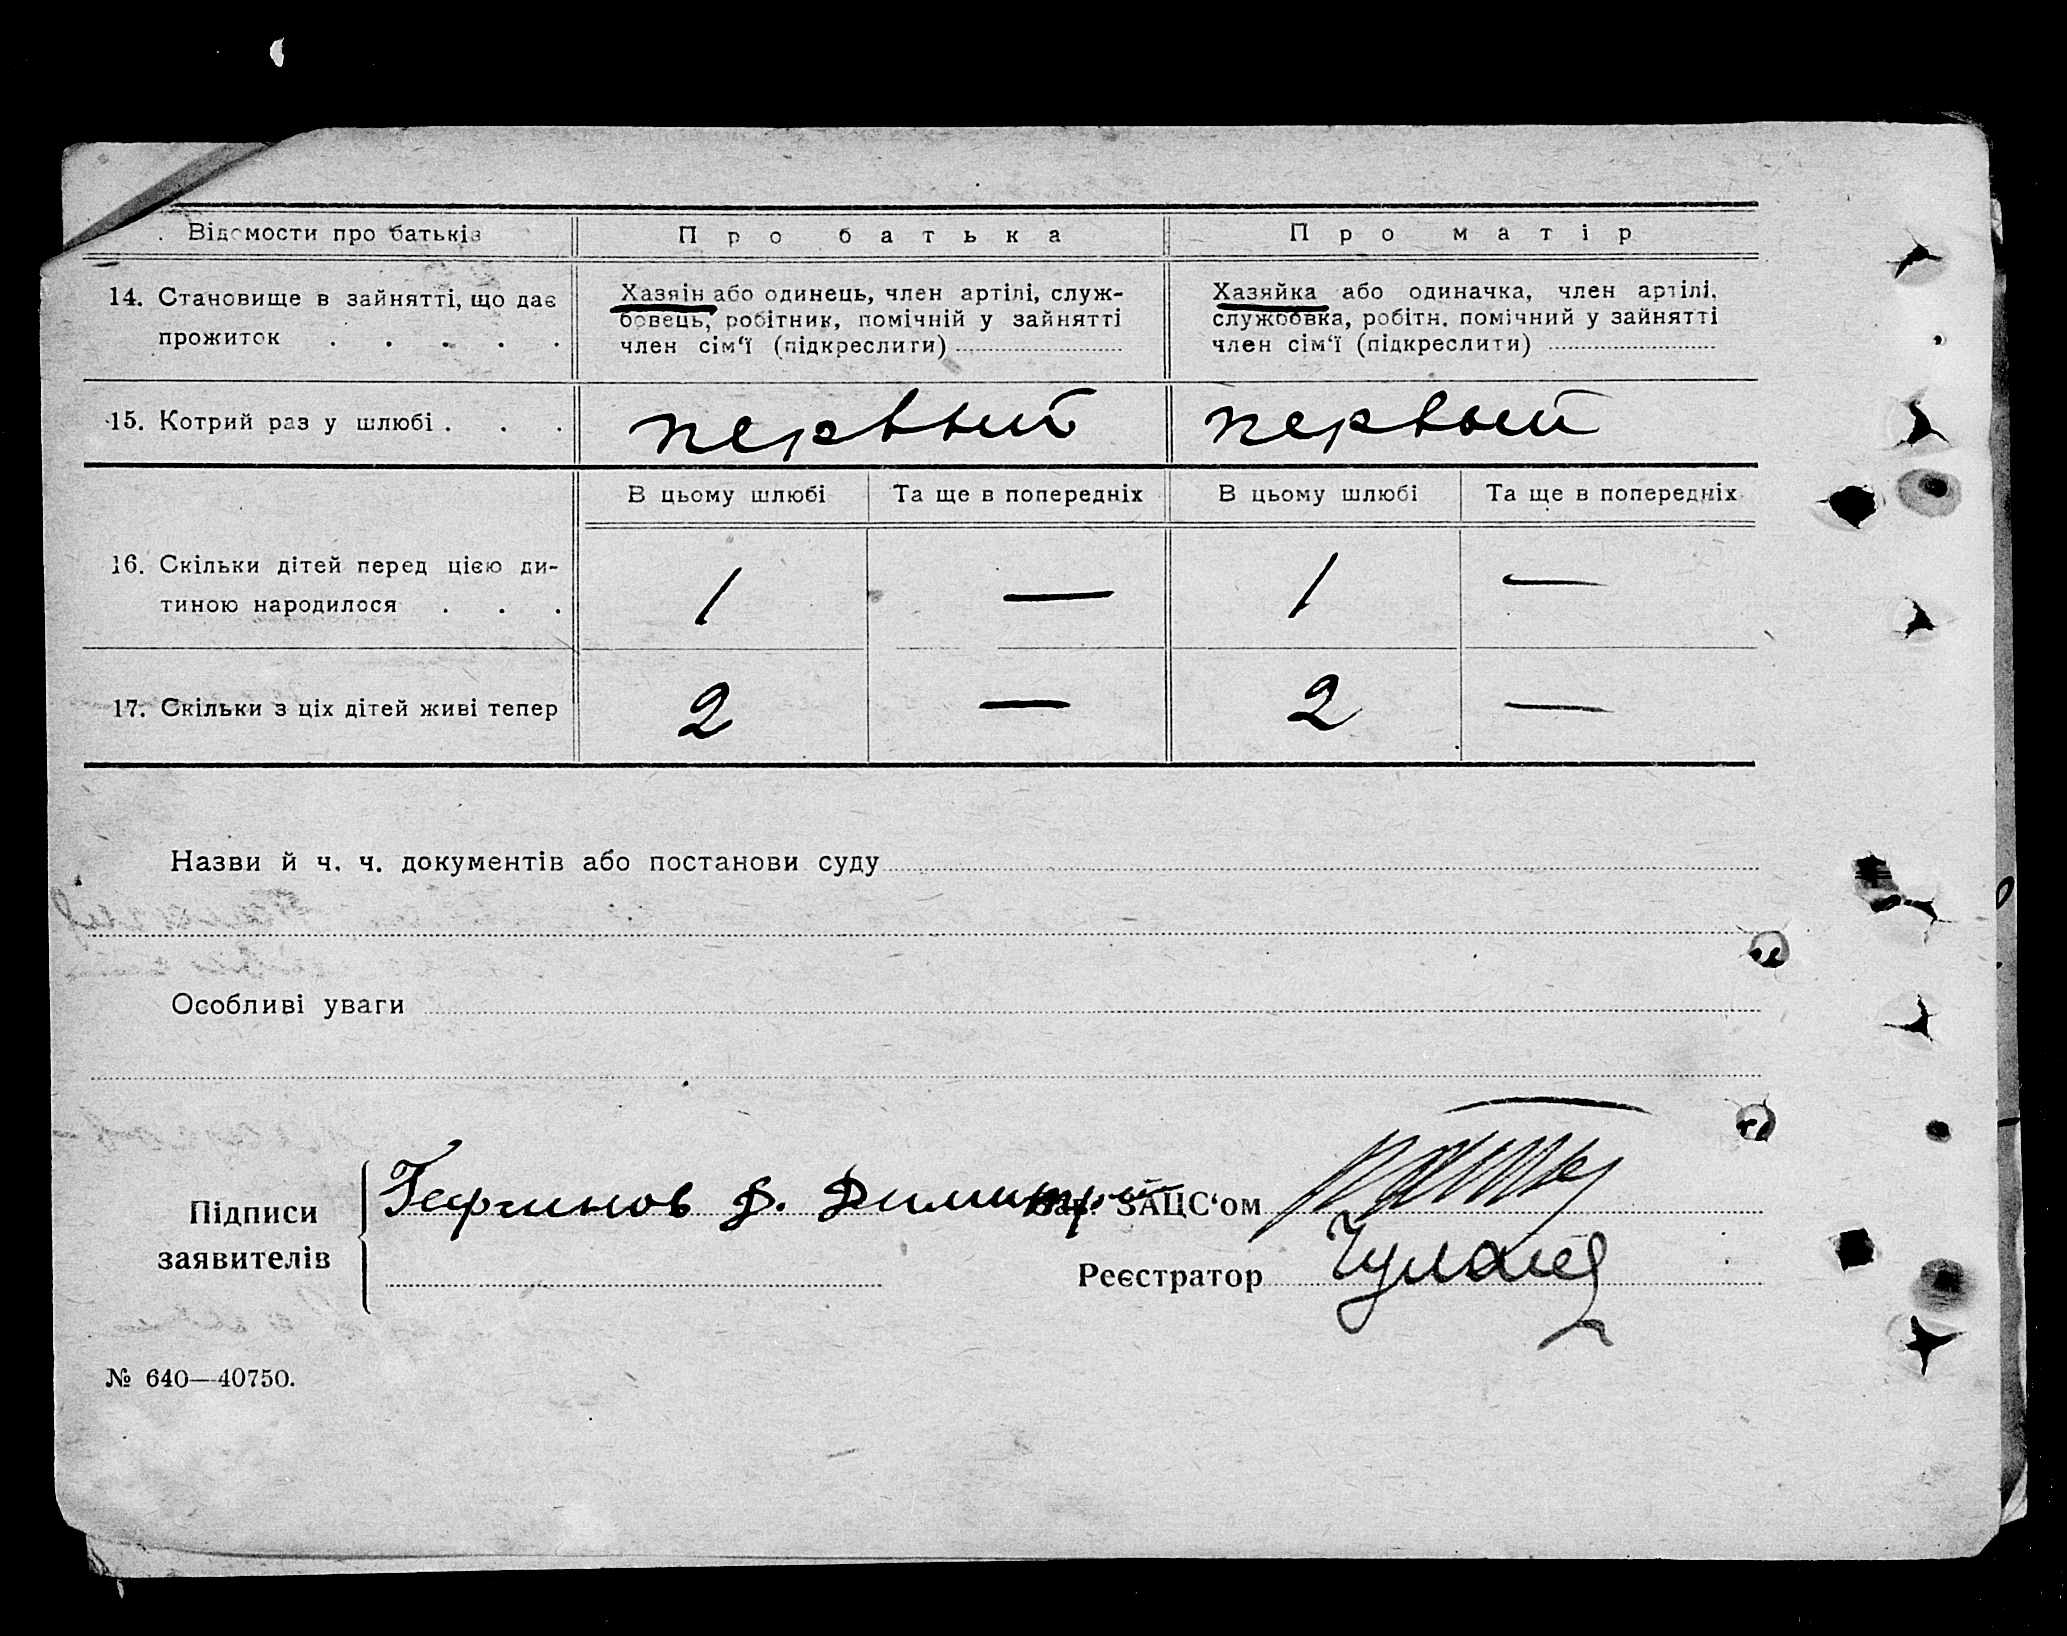 Відомости про батьків Про батька Про матір
14. Становище в зайнятті, що дає прожиток . . . . .
Хазяін або одинець, член артілі, служ-
бовець, робітник, помічній у зайнятті
член сім‘ї (підкреслити)
Хазяйка або одиначка, член артілі,
службовка, робітн. помічний у зайнятті
член сім‘ї (підкреслити)
15. Котрий раз у шлюбі . . . первый первый
В цьому шлюбі Та ще в попередніх В цьому шлюбі Та ще в попередніх
16. Скільки дітей перед цією ди-
тиною народилося . . . 1 — 1 —
17. Скільки з ціх дітей живі тепер 2 — 2 —
Назви й ч. ч. документів або постанови суду
Особливі уваги
Підписи
заявителів
Ф. Димитрий
Зав. ЗАЦС‘ом
Реєстратор
№ 640—40750.